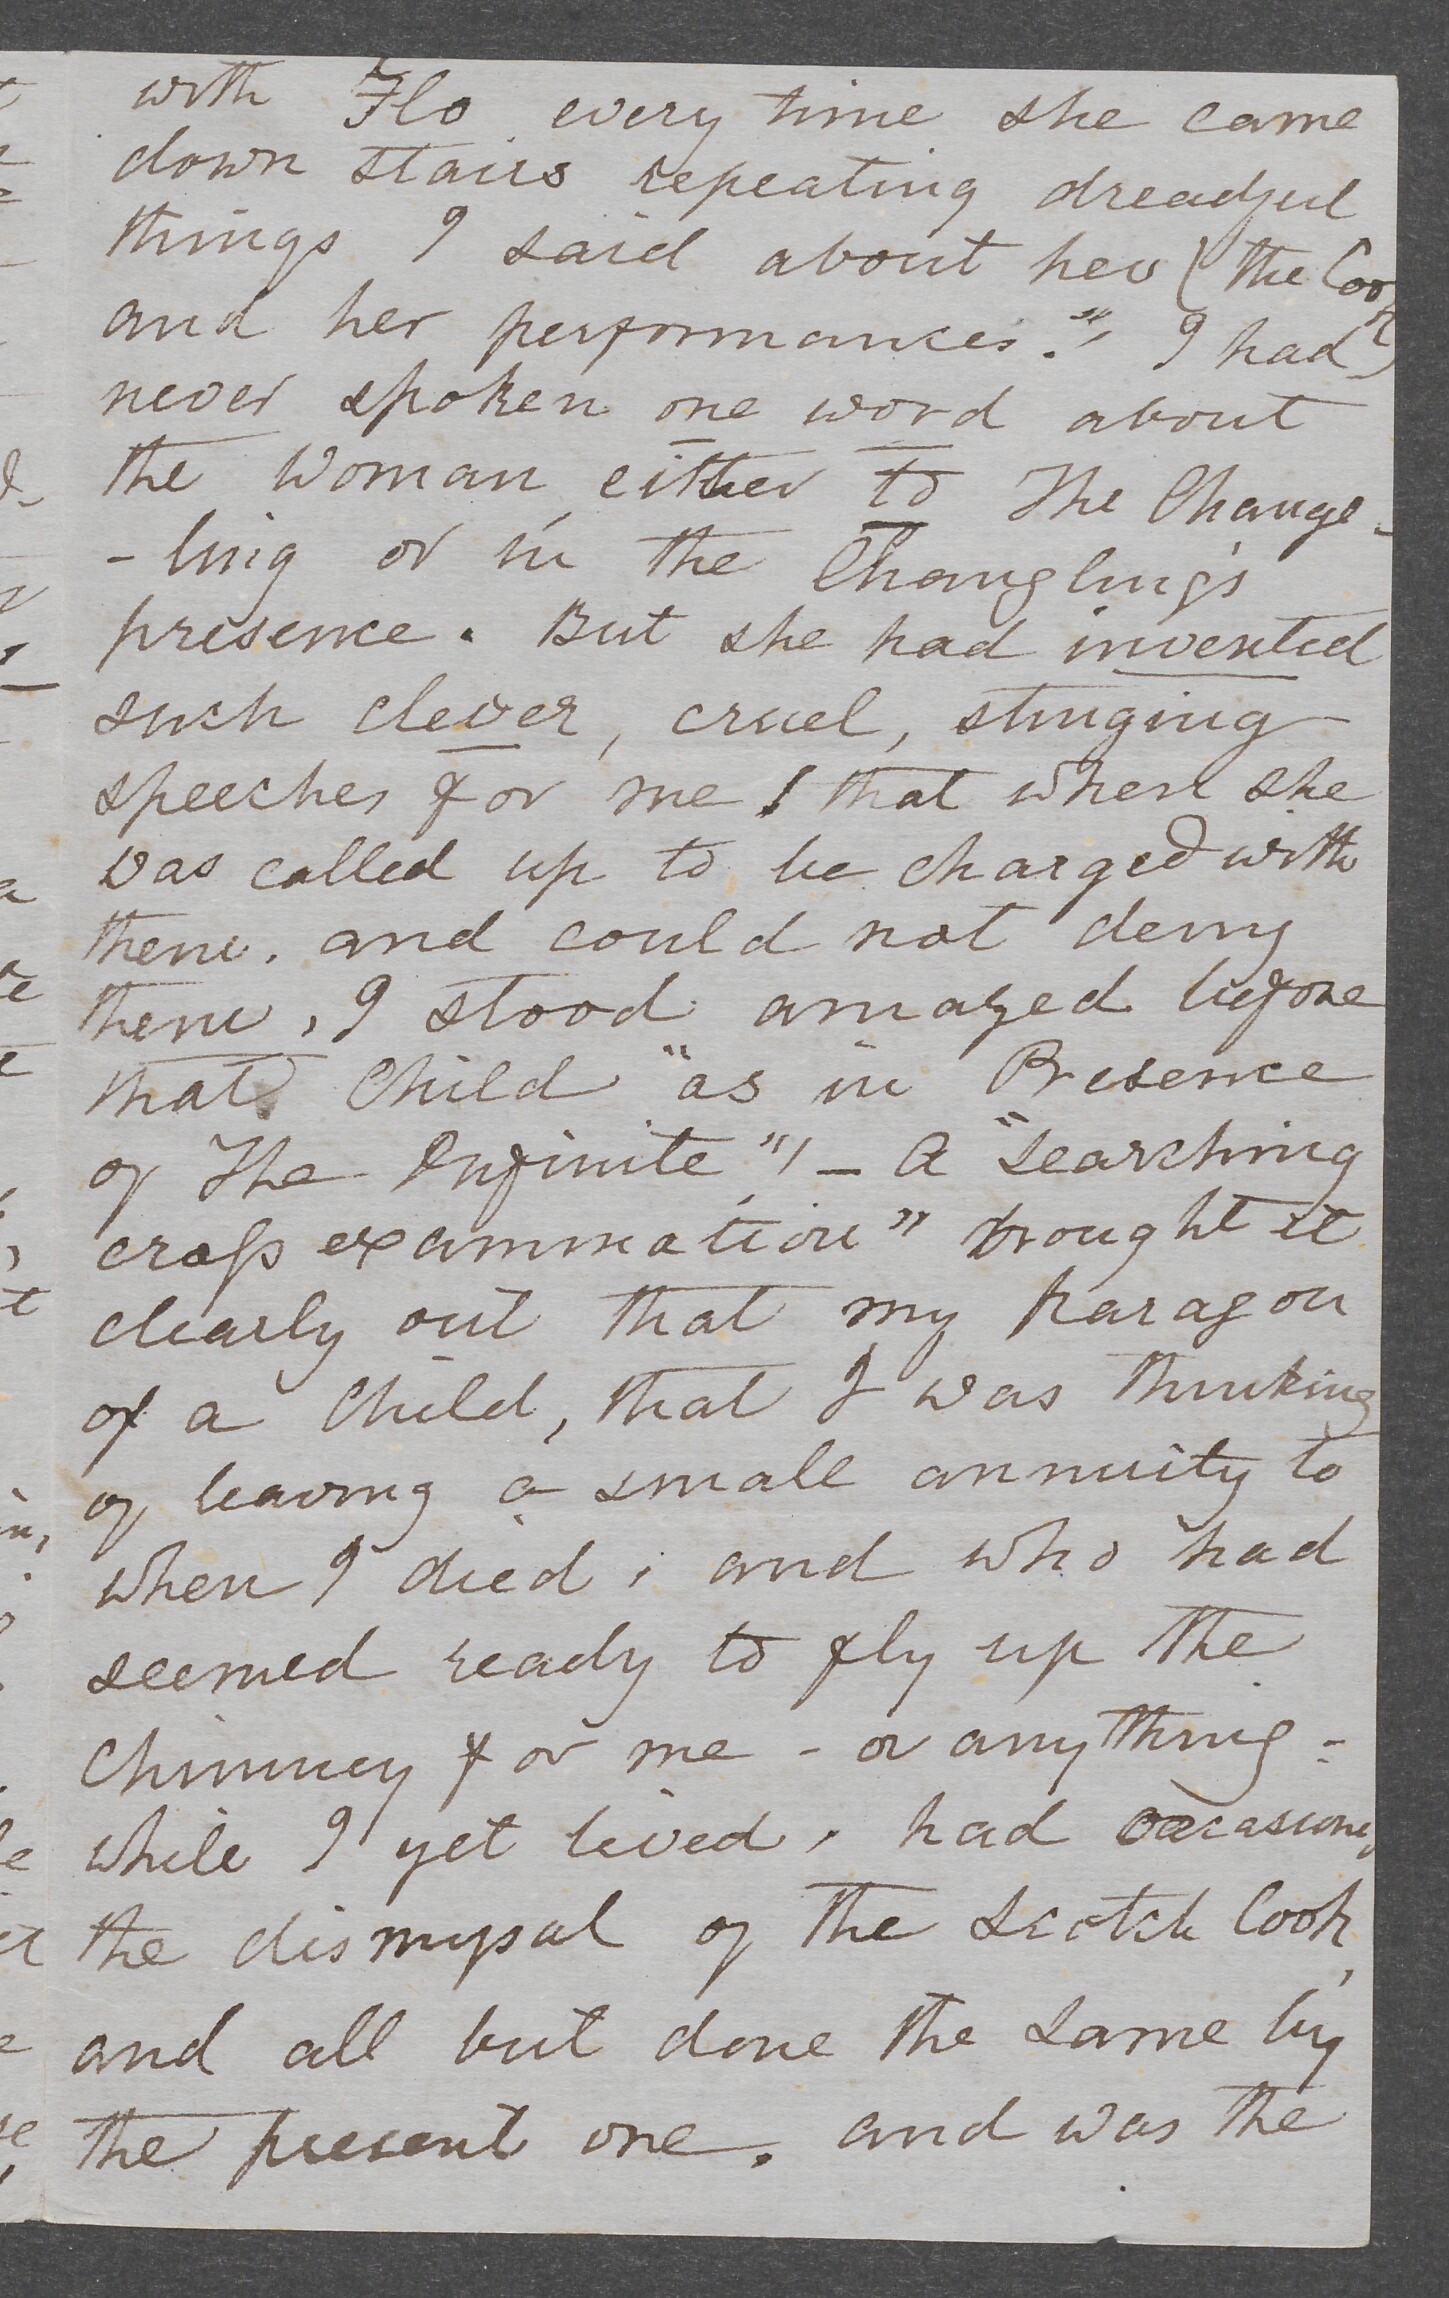 with Flo every time she came
down stairs repeating dreadful
things I said about her (the Cook)
and her performances." I had
never spoken one word about
the woman either to The Change-
-ling or in the Changling's
presence. But she had invented
such clever, cruel, stinging
speeches for me! that when she
was called up to be charged with
them, and could not deny
them, I stood amazed before
that Child "as in Presence
of The Infinite"! – A "searching
cross examination" brought it
clearly out that my paragon
of a Child, that I was thinking
of leaving a small annuity to
when I died, and who had
seemed ready to fly up the
Chimney for me – or anything –
while I yet lived, had occasioned
the dismissal of the Scotch Cook,
and all but done the same by
the present one, and was the